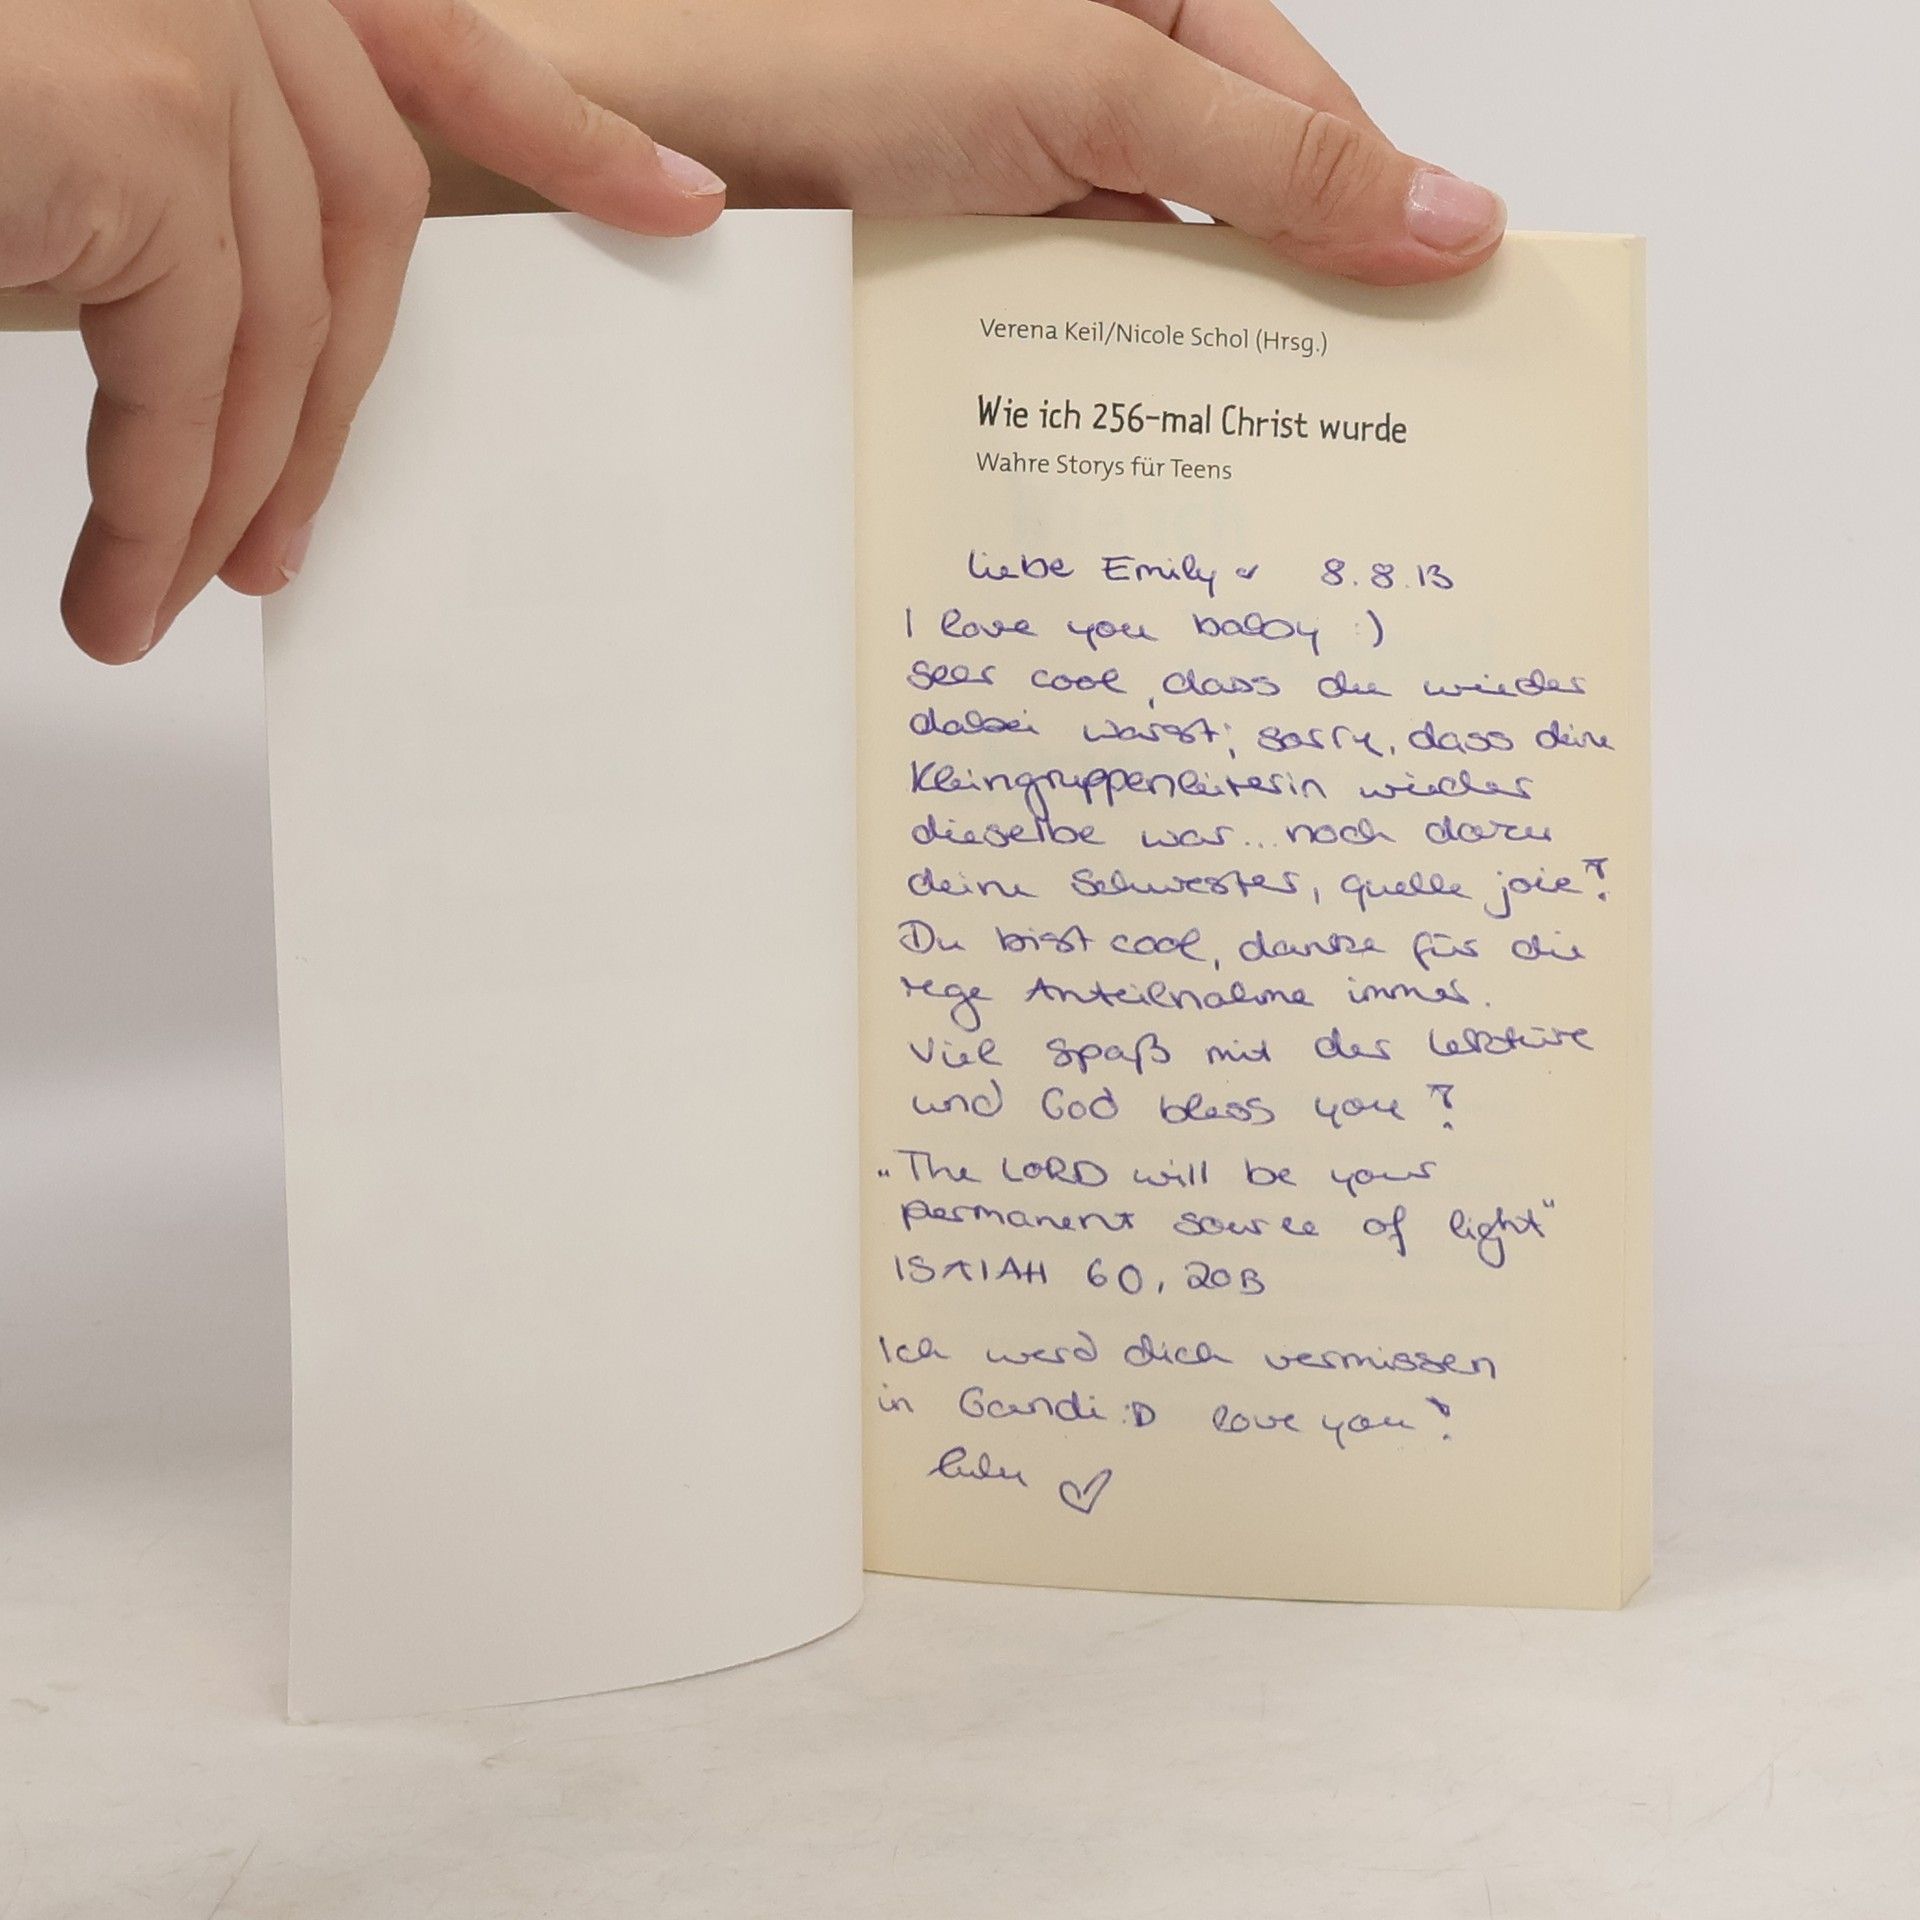 Verena Keil/Nicole Schol (Hrsg.)
Wie ich 256-mal Christ wurde
Wahre Storys für Teens
Liebe Emily ♥ 8.8.13
I love you baby :)
Seer cool, dass du wieder
dabei warst; sorry, dass deine
Kleingruppenleiterin wieder
dieselbe war... noch dazu
deine Schwester, quelle joie!
Du bist cool, danke für die
rege Anteilnahme immer.
Viel Spaß mit der Lektüre
und God bless you!
„The LORD will be your
permanent source of light“
ISAIAH 60, 20B
Ich werd dich vermissen
in Gandi :D love you!
Lulu ♡